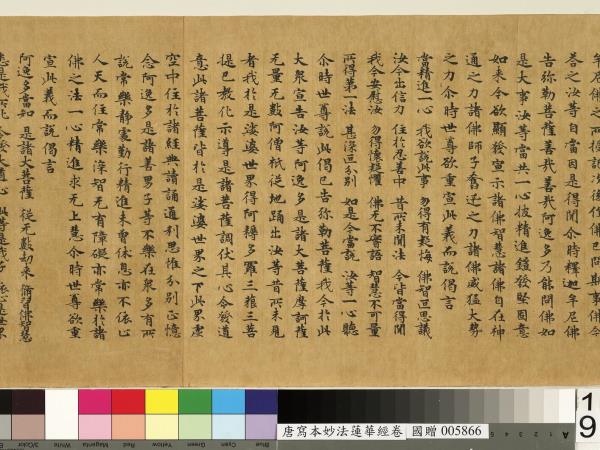 牟尼佛之所授記次後作佛已問斯事佛今
答之汝等自當因是得聞尒時釋迦牟尼佛
告弥勒菩薩善哉善哉阿逸多乃能問佛如
是大事汝等當共一心披精進鎧發堅固意
如來今欲顯發宣示諸佛智慧諸佛自在神
通之力諸佛師子奮迅之力諸佛威猛大勢
之力尒時世尊欲重宣此義而說偈言
當精進一心 我欲說此事 勿得有疑悔 佛智叵思議
汝今出信力 住於忍善中 昔所未聞法 今皆當得聞
我今安慰汝 勿得懷疑懼 佛无不實語 智慧不可量
所得第一法 甚深叵分別 如是今當說 汝等一心聽
尒時世尊說此偈已告弥勒菩薩我今於此
大衆宣告汝等阿逸多是諸大菩薩摩訶薩
无量无數阿僧祇從地踊出汝等昔所未見
者我於是娑婆世界得阿耨多羅三藐三菩
提已教化示導是諸菩薩調伏其心令發道
意此諸菩薩皆於是娑婆世界之下此界虛
空中住於諸經典讀誦通利思惟分別正憶
念阿逸多是諸善男子等不樂在衆多有所
說常樂靜處勤行精進未曾休息亦不依止
人天而住常樂深智无有障礙亦常樂於諸
佛之法一心精進求无上慧尒時世尊欲重
宣此義而說偈言
阿逸多當知 是諸大菩薩 從无數劫來 脩習佛智慧
悉是我所化 令發大道心 此等是我子 依止是世界
3/Color
White
Magenta
Red
Yellow
Green
Cyan
Blue
唐寫本妙法蓮華經卷 國贈 005866
6 5 4
A 1
19